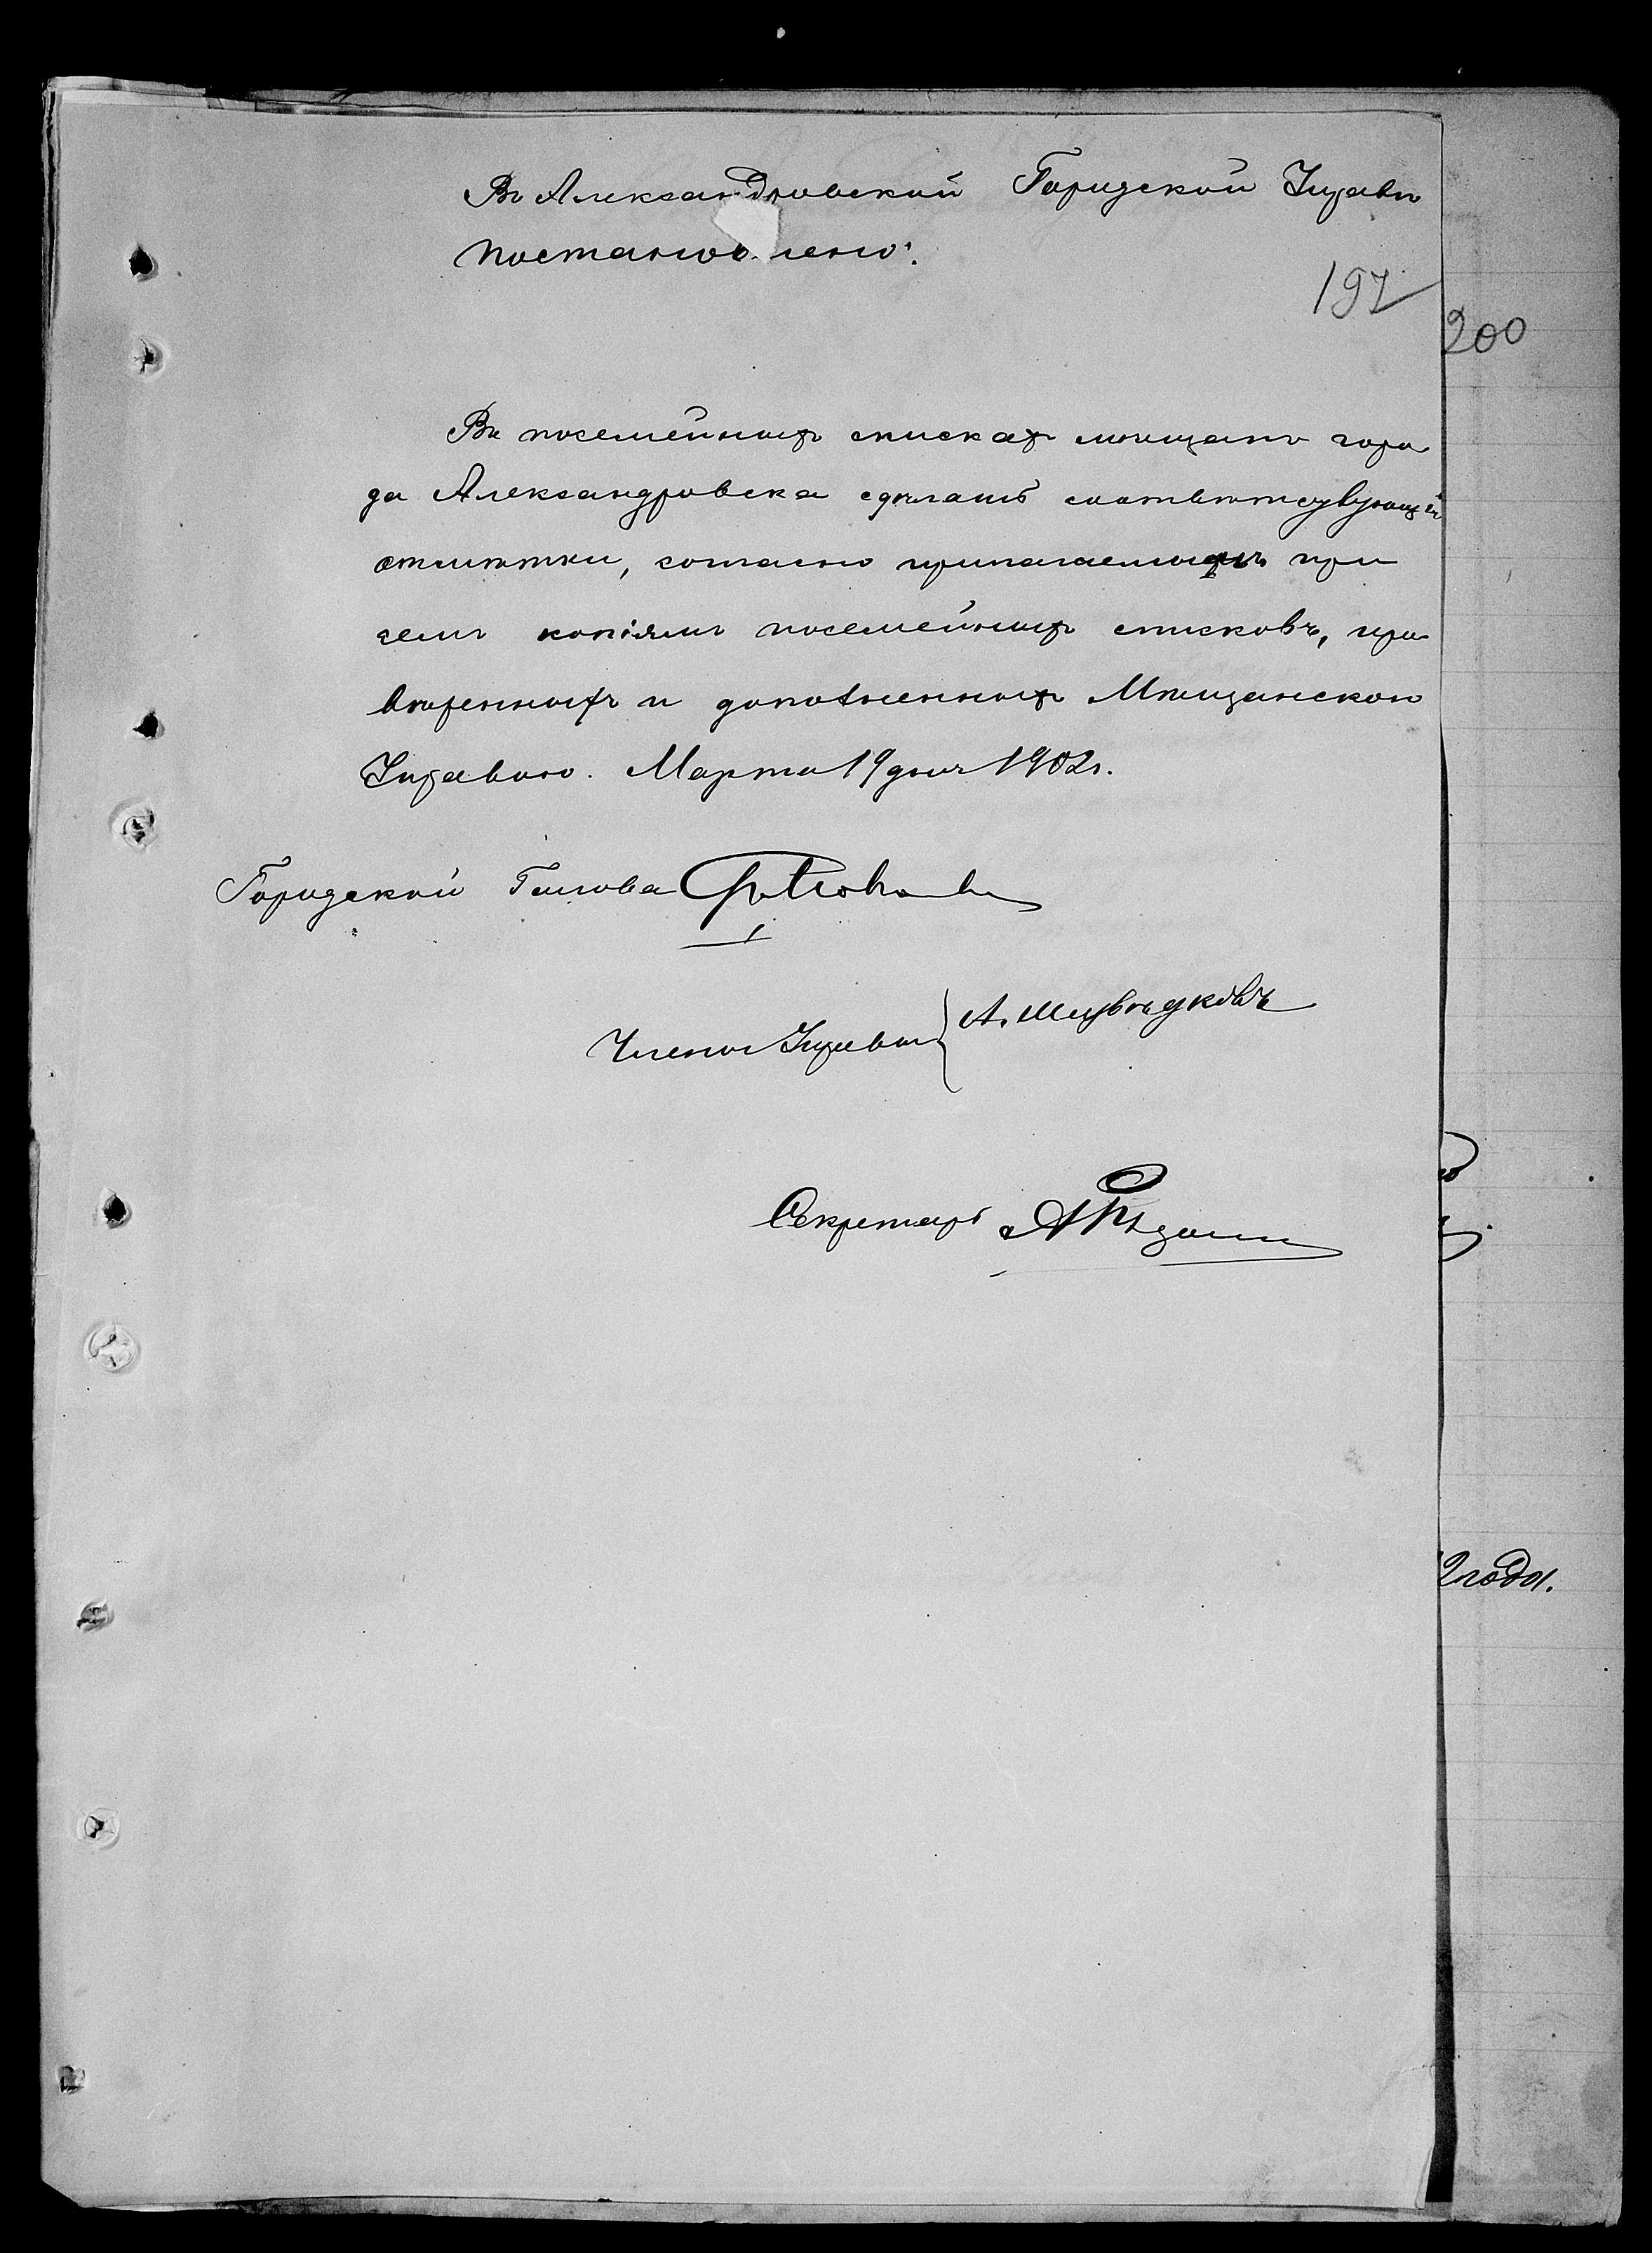 Въ Александровской Городской Управѣ
постановлено:
197
200
Въ посемейныхъ спискахъ мѣщанъ горо
да Александровска сдѣлать соотвѣтствующія
отмѣтки, согласно прилагаемымъ при
семъ копіямъ посемейныхъ списковъ, про
вѣренныхъ и дополненныхъ Мѣщанскою
Управою. Марта 19 дня 1902 г.
Городской Голова
Члены Управы
А.
Секретарь
2 года.